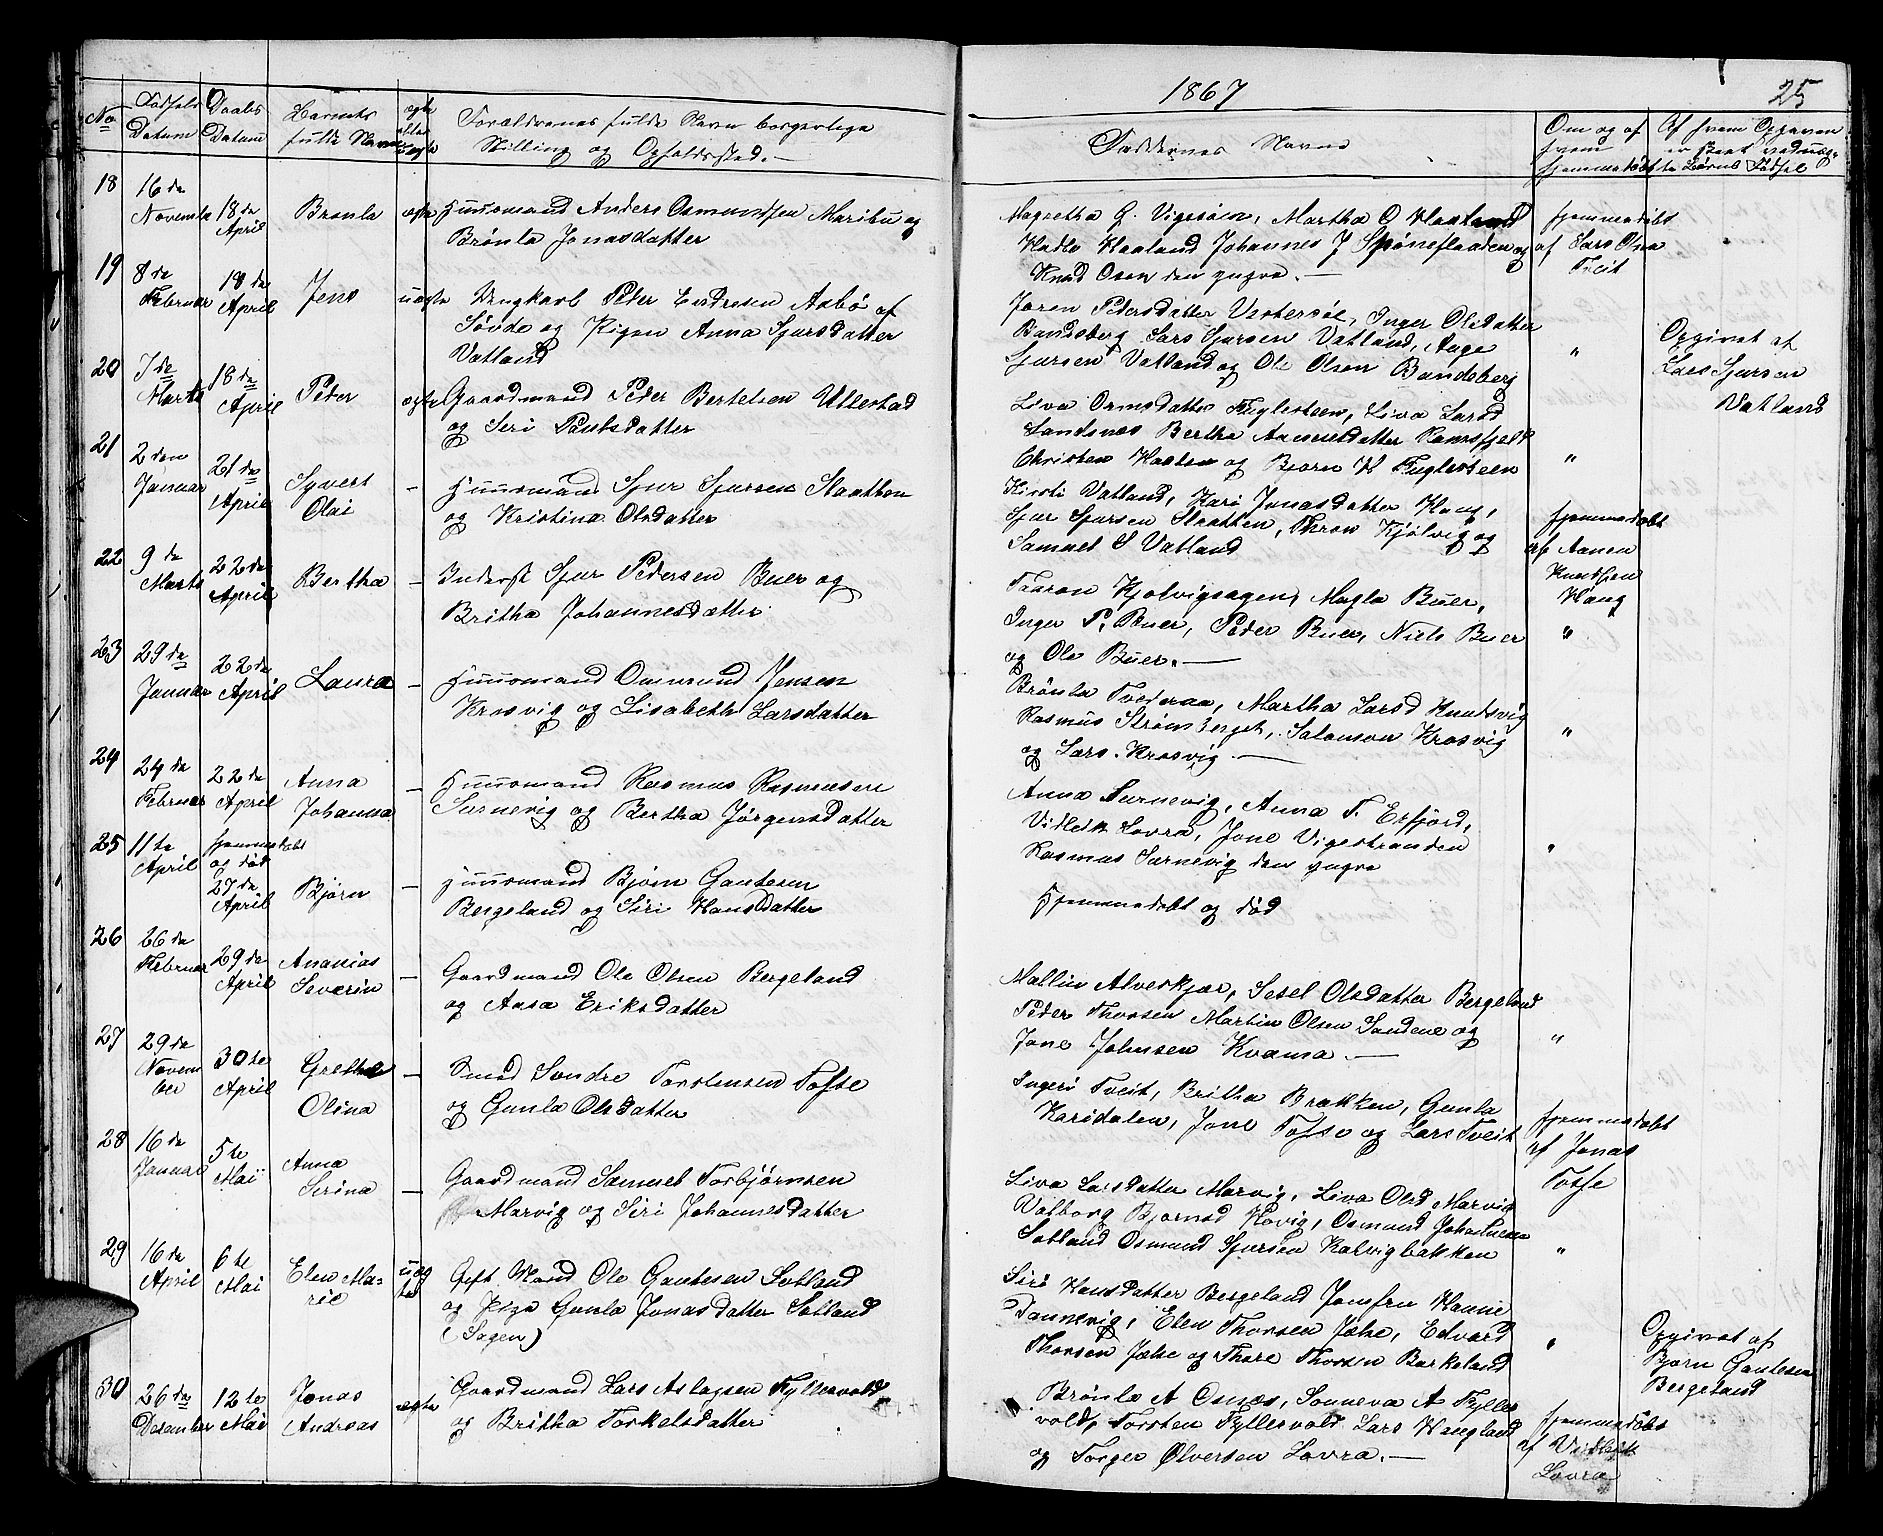 1867
25
No
Fødsels Datum
Daabs Datum
Barnets fulde Navn
ægte eller uægte
Forældrenes fulde Navn borgerlige
Stilling og Opholdssted. —
Faddernes Navne
Om og af hvem hjemmedøbt
Af hvem Opgaven er skeet
18
16de Novembr
18de April
Brønla
ægte
Huusmand Anders Osmundsen Maribu og
Brønla Jonasdatter
Magretha G. Vigesøen, Martha O Haaland
Haaland Johannes J Spøneflaaden og
Knud Osen den yngre. —
hjemmedøbt
af Lars Osen
Tveit
19
8de Februar
18de April
Jens
uægte
Ungkarl Peder Endresen Aabø af
Søvde og Pigen Anna Sjursdatter
Vatland
Joren Pedersdatter Vestersøe, Inger Olsdatter
Bandsberg Lars Sjursen Vatland, Aage
Sjursen Vatland og Ole Olsen Bandsberg
"
Opgivet af
Lars Sjursen
Vatland
20
7de Marts
18de April
Peder
ægte
Gaardmand Peder Bertelsen Ullestad
og Siri Poulsdatter
Liva Ormsdatter Fuglesteen, Liva Larsd
Sandsnes Bertha Aamundsdatter Ramsfjeld
Christen Hatten og Bjørn K Fuglesteen
"
21
2den Januar
21de April
Syvert
Olai
—
Huusmand Sjur Sjursen Slaatten
og Kristina Olsdatter
Kirsti Vatland, Kari Jonasdatter Haug,
Sjur Sjursen Slaatten, Thron Kjølvig og
Samuel S Vatland
hjemmedøbt
af Aanen
Knudsen
Haug
22
9de Marts
22de April
Bertha
—
Inderst Sjur Pedersen Buer og
Britha Johannesdatter
Taaran Kjølvigsagen, Magla Buer,
Inger P. Buer, Peder Buer, Niels Buer
og Ole Buer. —
"
23
29de Januar
22de April
Laura
—
Huusmand Osmund Jensen
Krosvig og Lisabeth Larsdatter
Brønla Tvederaa, Martha Larsd Knutsvig
Rasmus Strømberget, Salamon Krosvig
og Lars Krosvig —
"
24
24de Februar
22de April
Anna
Johanna
—
Huusmand Rasmus Rasmusen
Sarnevig og Bertha Jørgensdatter
Anna Sarnevig, Anna T. Erfjord,
Vidleik Lovra, Jone Vigestranden
Rasmus Sarnevig den yngre
"
25
11te April
hjemmedøbt
og død
27de April
Bjørn
—
Huusmand Bjørn Gautesen
Bergeland og Siri Hansdatter
Hjemmedøbt og død
26
26de Februar
29de April
Ananias
Severin
—
Gaardmand Ole Olsen Bergeland
og Aasa Eriksdatter
Mallin Alveskjær, Sesel Olsdatter Bergeland
Peder Thorsen Martin Olsen Sandene og
Jone Johnsen Kvama. —
"
27
29de Novem
ber
30te April
Grethe
Olina
—
Smed Sondre Torstensen Tofte
og Gunla Olsdatter
Ingeri Tveit, Britha Brækken, Gunla
Karidalen, Jone Tofte og Lars Tveit
hjemmedøbt
af Jonas
Tofte
28
16de Januar
5te Mai
Anna
Serina
—
Gaardmand Samuel Torbjørnsen
Marvig og Siri Johannesdatter
Liva Larsdatter Marvig, Liva Olsd Marvig
Valborg Bjornsd Hovig, Osmund Johannesen
Sotland Osmund Sjursen Kalvigbakken
"
29
16de April
6te Mai
Elen Ma=
rie
uæg
te
Gift Mand Ole Gautesen Sotland
og Pige Gunla Jonasdatter Sotland
(Sagen)
Siri Hansdatter Bergeland Jomfru Hanne
Dannevig, Elen Thorsen Jelse, Edvard
Thorsen Jelse og Thore Thorsen Barkeland
"
Opgivet af
Bjørn Gautesen
Bergeland
30
26de Desember
12te Mai
Jonas
Andreas
ægte
Gaardmand Lars Aslagsen Fyllesvold
og Britha Torkelsdatter
Brønla A Osnes, Sonneva A Fylles
vold, Torsten Fyllesvold Lars Hengland
og Torger Ølversen Lovra. —
hjemmedøbt
af Vidleik
Lovra